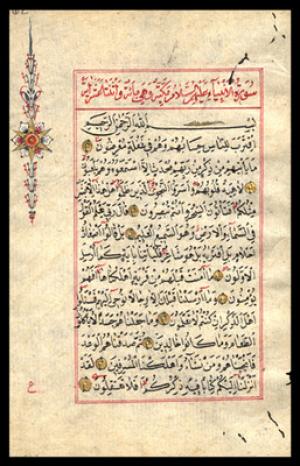 سورة الانبياء عليهم السلام مكية وهي مائة واثنتا عشرة اية
بسم الله الرحمن الرحيم
اقترب للناس حسابهم وهم في غفلة معرضون
ما ياتيهم من ذكر من ربهم محدث الا استمعوه وهم يلعبون
لاهية قلوبهم واسروا النجوى الذين ظلموا هل هذا الا بشر
مثلكم افتاتون السحر وانتم تبصرون قال ربي يعلم القول
في السماء والارض وهو السميع العليم بل قالوا اضغاث
احلام بل افتريه بل هو شاعر فلياتنا باية كما ارسل
الاولون ما امنت قبلهم من قرية اهلكناها افهم
يؤمنون وما ارسلنا قبلك الا رجالا نوحي اليهم فسئلوا
اهل الذكر ان كنتم لا تعلمون وما جعلناهم جسدا لا ياكلون
الطعام وما كانوا خالدين ثم صدقناهم الوعد
فانجيناهم ومن نشاء واهلكنا المسرفين لقد
انزلنا اليكم كتابا فيه ذكركم افلا تعقلون
ع